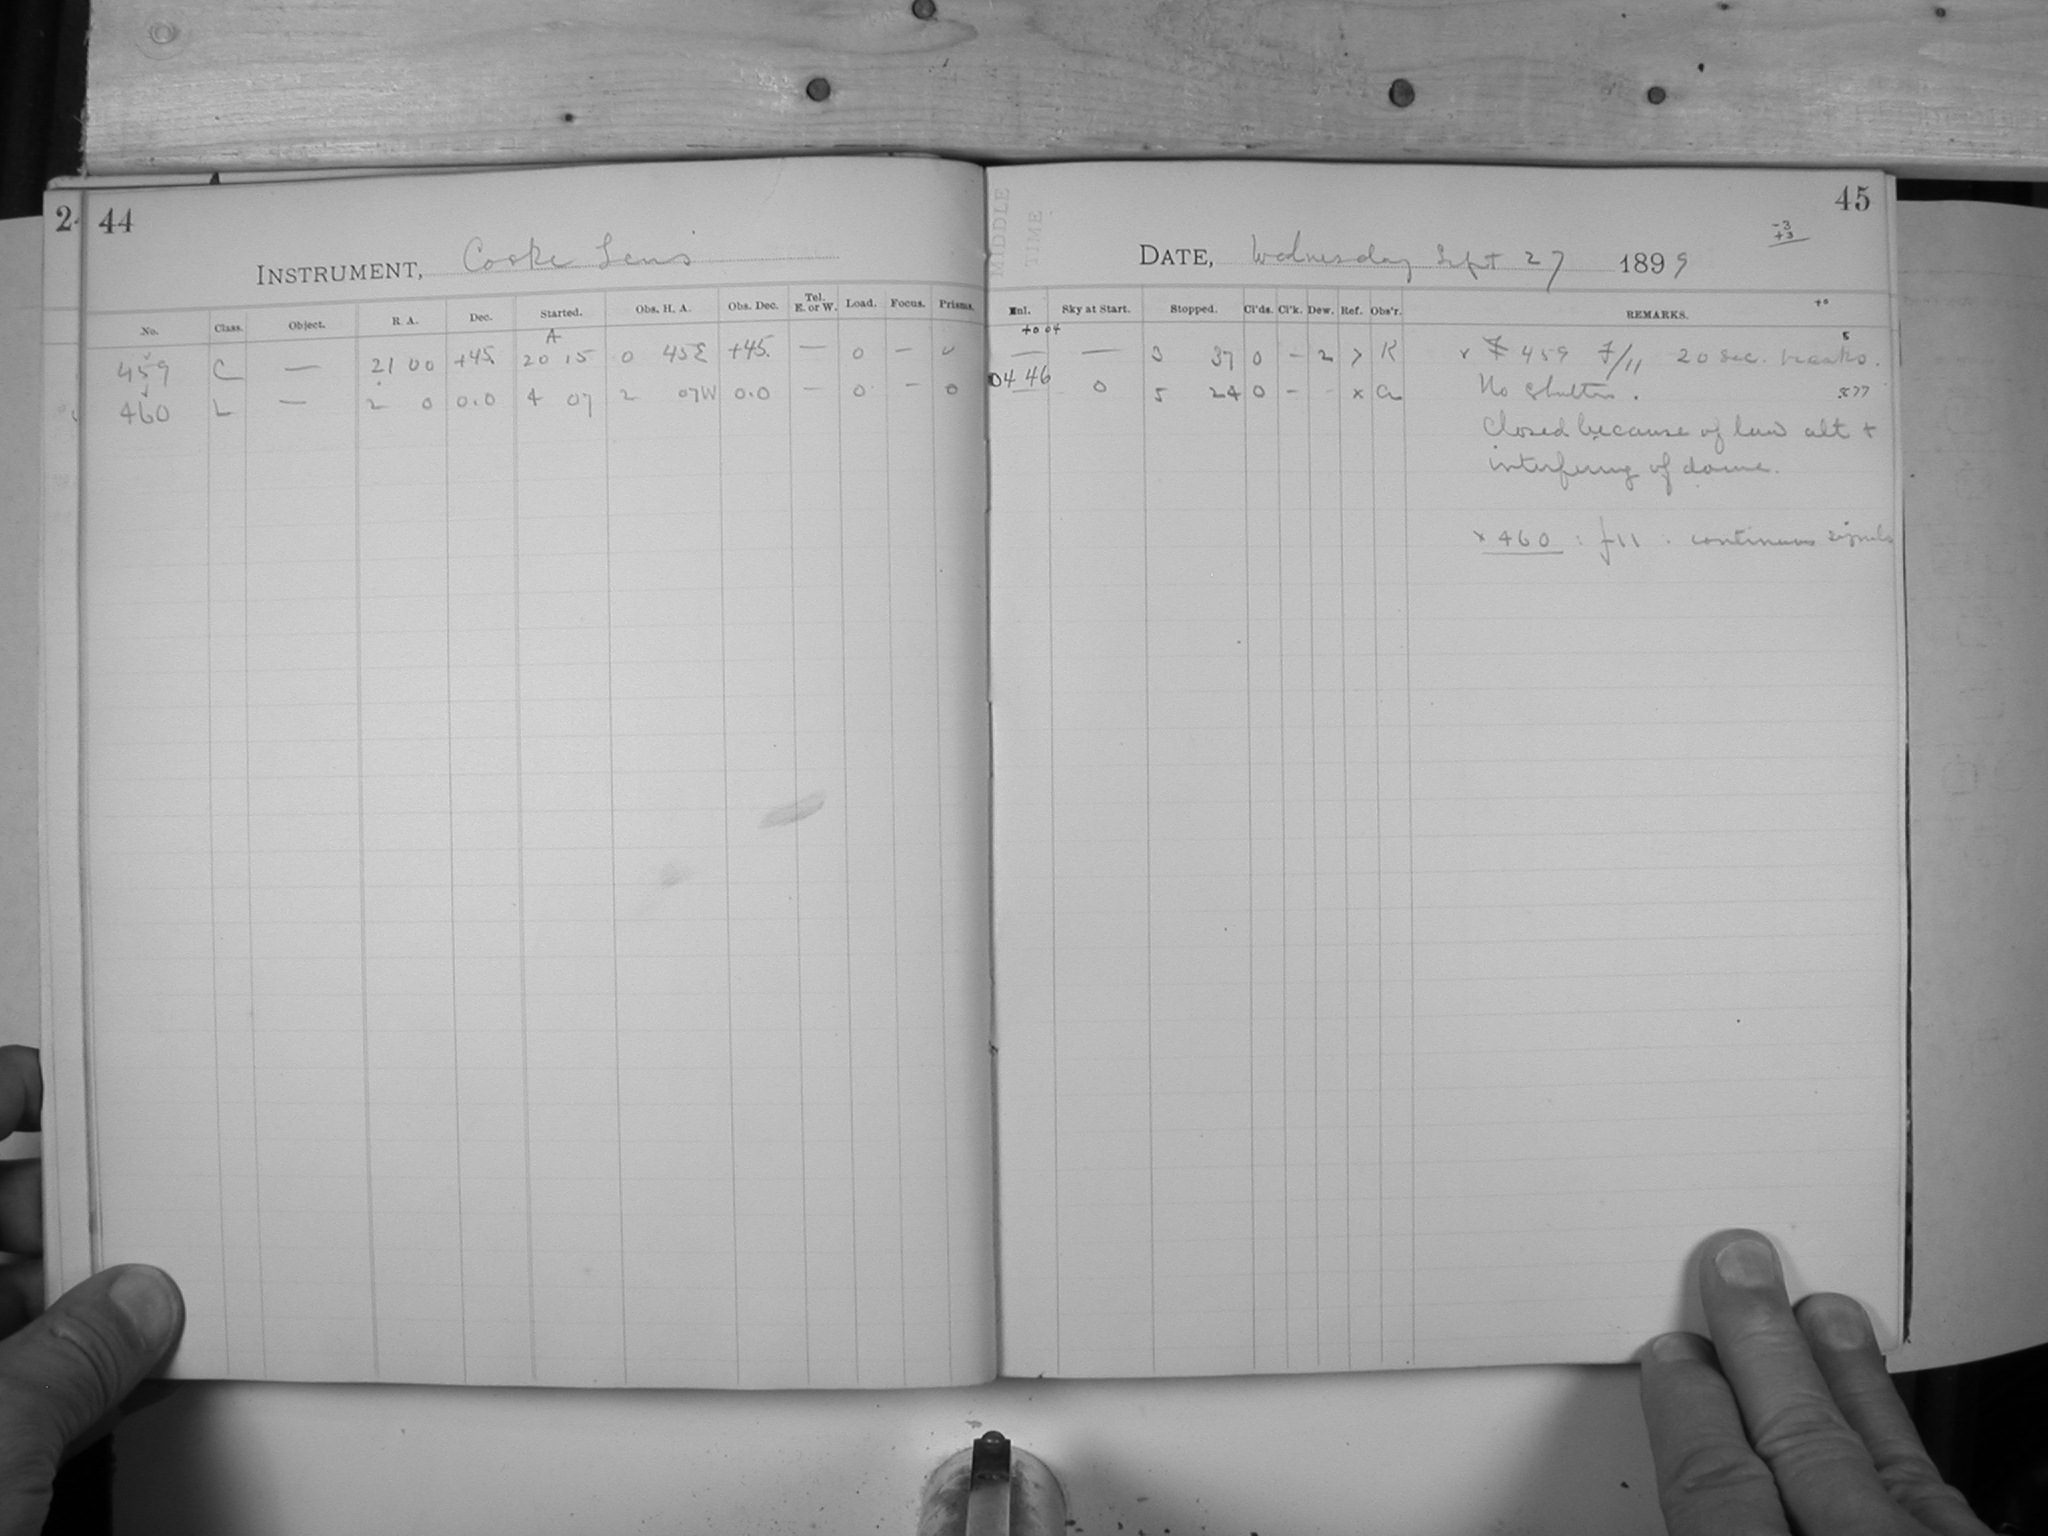 2
44
INSTRUMENT, Cooke Lens
No. Class. Object. R. A. Dec. Started. Obs. H. A. Obs. Dec. Tel. E. or W. Load. Focus. Prisms.
A
459 C — 21 00 +45. 20 15 0 45E +45. — 0 — 0
460 L — 2 0 0.0 4 07 2 07W 0.0 — 0 — 0
MIDDLE
TIME
45
-3
+3
DATE, Wednesday Sept 27 1899
+0
Mnl. Sky at Start. Stopped. Cl'ds. Cl'k. Dew. Ref. Obs'r. REMARKS.
+0 04
— — 3 37 0 - 2 R 459 F/11 20 sec. breaks.
04 46 0 5 24 0 - - x a No shutter. .877
Closed because of low alt +
interfering of dome.
x 460 : f11 . continuous signals